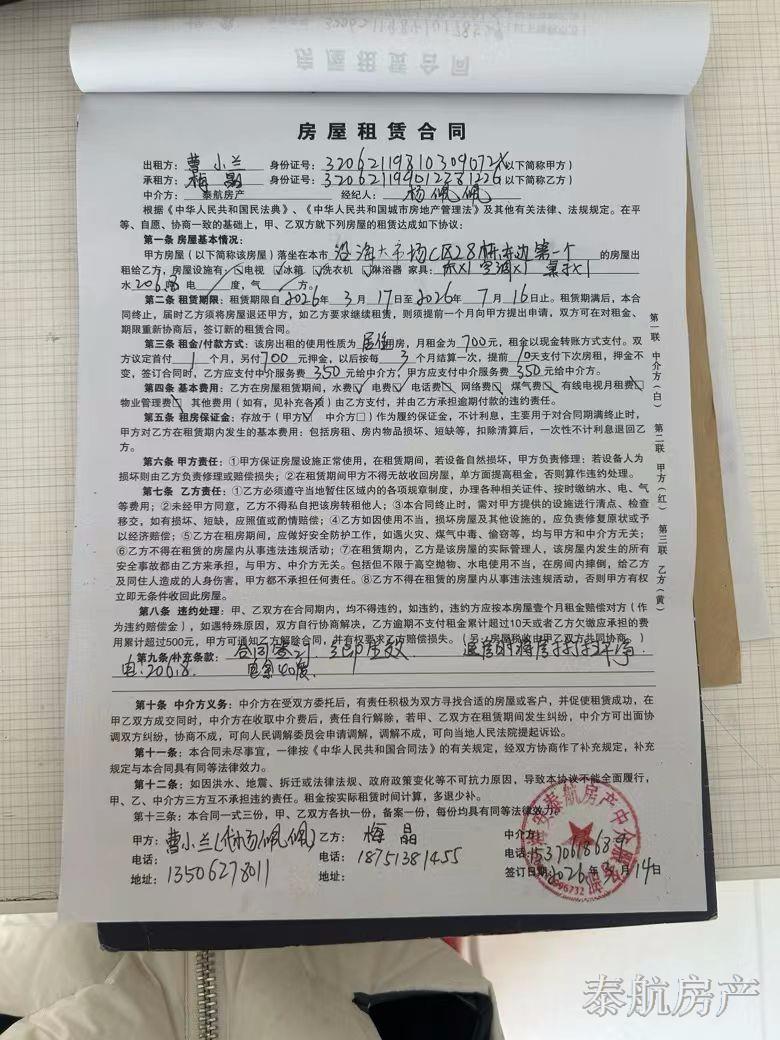 房屋租赁合同
出租方： 曹小兰 身份证号：32062119810309072X（以下简称甲方）
承租方： 梅晶 身份证号：（以下简称乙方）
中介方： 泰航房产 经纪人： 杨佩佩
根据《中华人民共和国民法典》、《中华人民共和国城市房地产管理法》及其他有关法律、法规规定。在平
等、自愿、协商一致的基础上，甲、乙双方就下列房屋的租赁达成如下协议：
第一条 房屋基本情况：
甲方房屋（以下简称该房屋）落坐在本市 沿海大市场C区28栋东边第一个 的房屋出
租给乙方，房屋设施有：☑电视 ☑冰箱 ☑洗衣机 ☑淋浴器 家具： 床X1 空调X1 桌子X1
水 206.8 吨 电 度，气 方。
第二条 租赁期限：租赁期限自2026年 3 月 17日至2026年 7 月16日止。租赁期满后，本合
同终止，届时乙方须将房屋退还甲方，如乙方要求继续租赁，则须提前一个月向甲方提出申请，双方可在对租金、
期限重新协商后，签订新的租赁合同。
第三条 租金/付款方式：该房出租的使用性质为 居住 用房，月租金为 700 元，租金以现金转账方式支付。双
方议定首付 1 个月，另付 700 元押金，以后按每 3 个月结算一次，提前 10 天支付下次房租，押金不
变，签订合同时，乙方应支付中介服务费 350 元给中介方，甲方应支付中介服务费 350 元给中介方。
第四条 基本费用：乙方在房屋租赁期间，水费☑ 电费☑ 电话费 网络费 煤气费 有线电视月租费
物业管理费 其他费用（如有，见补充各项）由乙方支付，并由乙方承担逾期付款的违约责任。
第五条 租房保证金：存放于（甲方☑ 中介方□）作为履约保证金，不计利息，主要用于对合同期满终止时，
甲方对乙方在租赁期内发生的基本费用：包括房租、房内物品损坏、短缺等，扣除清算后，一次性不计利息退回乙
方。
第六条 甲方责任：①甲方保证房屋设施正常使用，在租赁期间，若设备自然损坏，甲方负责修理；若设备人为
损坏则由乙方负责修理或赔偿损失；②在租赁期间甲方不得无故收回房屋，单方面提高租金，否则算作违约处理。
第七条 乙方责任：①乙方必须遵守当地暂住区域内的各项规章制度，办理各种相关证件、按时缴纳水、电、气
等费用；②未经甲方同意，乙方不得私自把该房转租他人；③本合同终止时，需对甲方提供的设施进行清点、检查
移交，如有损坏、短缺，应照值或酌情赔偿；④乙方如因使用不当，损坏房屋及其他设施的，应负责修复原状或予
以经济赔偿；⑤乙方在租房期间，应做好安全防护工作，如遇火灾、煤气中毒、偷窃等，均与甲方和中介方无关；
⑥乙方不得在租赁的房屋内从事违法违规活动；⑦在租赁期内，乙方是该房屋的实际管理人，该房屋内发生的所有
安全事故都由乙方来承担，与甲方、中介方无关。包括但不限于高空抛物、水电使用不当，在房间内摔倒，给乙方
及同住人造成的人身伤害，甲方都不承担任何责任。⑧乙方不得在租赁的房屋内从事违法违规活动，否则甲方有权
立即无条件收回此房屋。
第八条 违约处理：甲、乙双方在合同期内，均不得违约，如违约，违约方应按本房屋壹个月租金赔偿对方（作
为违约赔偿金），如遇特殊原因，双方自行协商解决，乙方逾期不支付租金累计超过10天或者乙方欠缴应承担的费
用累计超过500元，甲方可通知乙方解除合同，并有权要求乙方赔偿损失。（另：房屋税收由甲乙双方共同协商。）
第九条/补充条款： 合同签订 即生效 退房时将房打扫干净.
电：206.8. 电余40度.
第十条 中介方义务：中介方在受双方委托后，有责任积极为双方寻找合适的房屋或客户，并促使租赁成功，在
甲乙双方成交同时，中介方在收取中介费后，责任自行解除，若甲、乙双方在租赁期间发生纠纷，中介方可出面协
调双方纠纷，协商不成，可向人民调解委员会申请调解，调解不成，可向当地人民法院提起诉讼。
第十一条：本合同未尽事宜，一律按《中华人民共和国合同法》的有关规定，经双方协商作了补充规定，补充
规定与本合同具有同等法律效力。
第十二条：如因洪水、地震、拆迁或法律法规、政府政策变化等不可抗力原因，导致本协议不能全面履行，
甲、乙、中介方三方互不承担违约责任。租金按实际租赁时间计算，多退少补。
第十三条：本合同一式三份，甲、乙双方各执一份，备案一份，每份均具有同等法律效力。
甲方：曹小兰（代杨佩佩） 乙方： 梅晶 中介方：
电话：13506278011 电话： 18751381455 电话：
地址： 地址： 签订日期：2026年3月14日
第一联 中介方（白） 第二联 甲方（红） 第三联 乙方（黄）
泰航房产